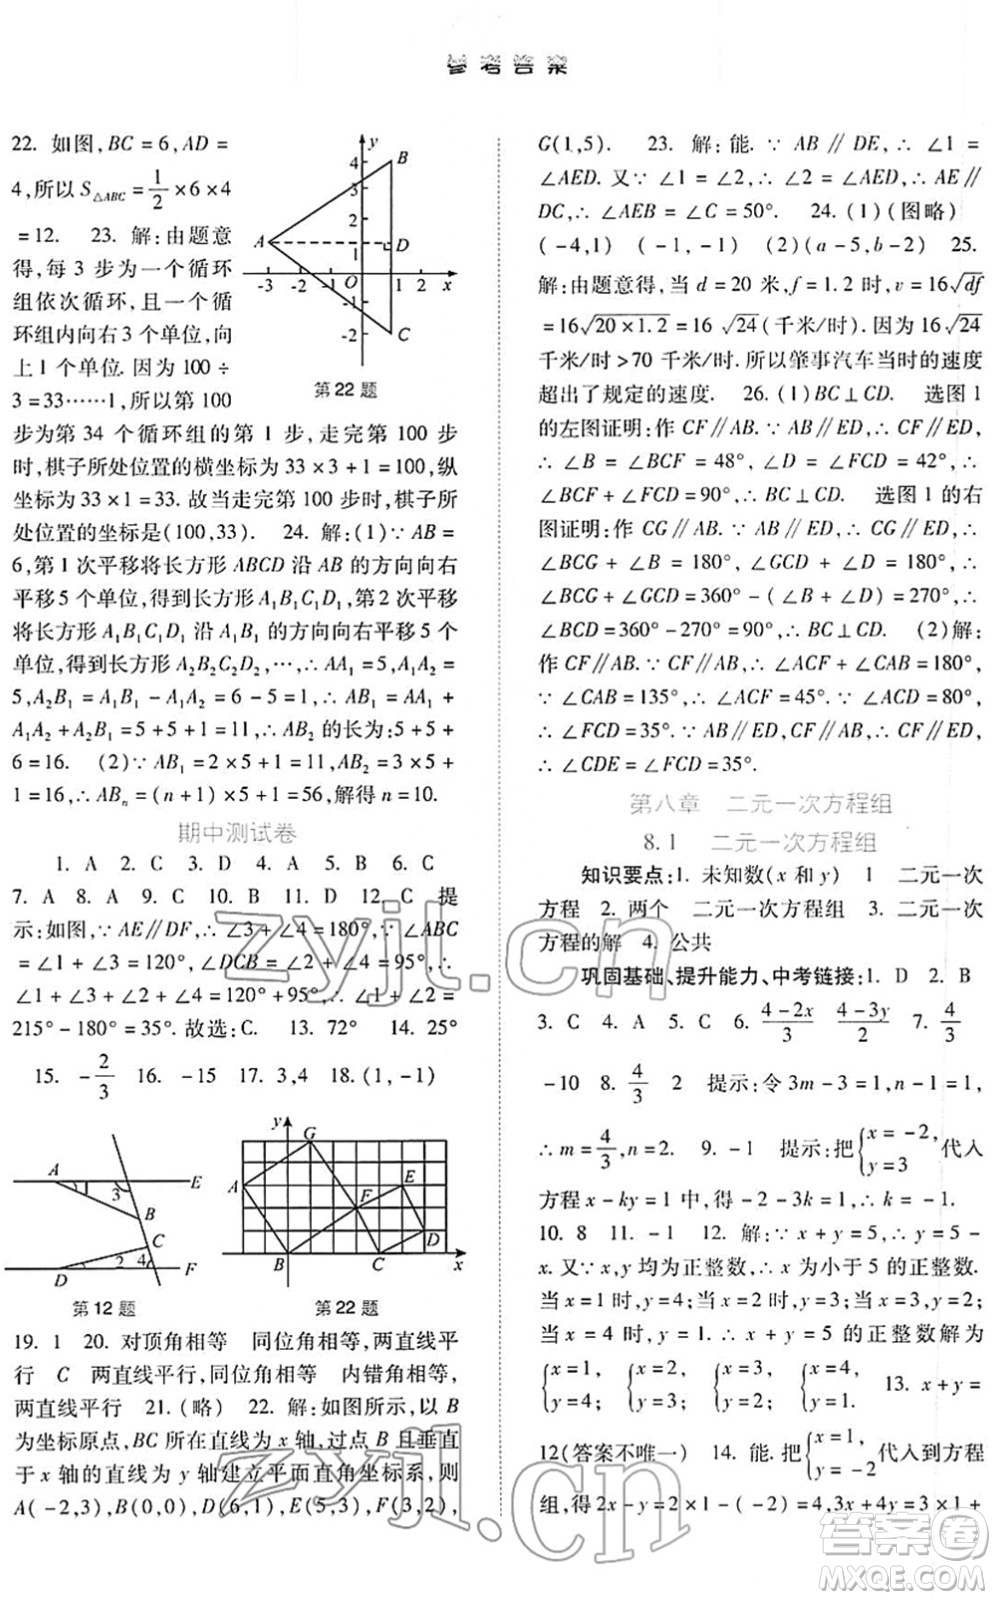 参考答案
22. 如图,BC=6,AD=
4,所以 S△ABC=1/2×6×4
=12. 23. 解:由题意
得,每 3 步为一个循环
组依次循环,且一个循
环组内向右3个单位,向
上1个单位.因为 100÷
3=33……1,所以第 100
步为第 34 个循环组的第 1 步,走完第 100 步
时,棋子所处位置的横坐标为 33×3+1=100,纵
坐标为 33×1=33. 故当走完第 100 步时,棋子所
处位置的坐标是(100,33). 24. 解:(1)∵AB=
6,第1次平移将长方形 ABCD 沿 AB 的方向向右
平移5个单位,得到长方形 A₁B₁C₁D₁,第2次平移
将长方形 A₁B₁C₁D₁ 沿 A₁B₁ 的方向向右平移5个
单位,得到长方形 A₂B₂C₂D₂,…,∴AA₁=5,A₁A₂=
5,A₂B₁=A₁B₁-A₁A₂=6-5=1,∴AB₂=AA₁+
A₁A₂+A₂B₂=5+5+1=11,∴AB₂的长为:5+5+
6=16. (2)∵AB₁=2×5+1=11,AB₂=3×5+
1=16,∴ABₙ=(n+1)×5+1=56,解得 n=10.
y
4
3
2
1
A
B
D
C
O
-3 -2 -1 1 2 x
-1
-2
第22题
期中测试卷
1. A 2. C 3. D 4. A 5. B 6. C
7. A 8. A 9. C 10. B 11. D 12. C 提
示:如图,∵AE∥DF,∴∠3+∠4=180°,∵∠ABC
=∠1+∠3=120°,∠DCB=∠2+∠4=95°,∴
∠1+∠3+∠2+∠4=120°+95°,∴∠1+∠2=
215°-180°=35°. 故选:C. 13. 72° 14. 25°
15. -2/3 16. -15 17. 3,4 18. (1,-1)
A 1 3 E
B
C
D 2 4 F
第12题
y
G
A
E
F
D
B C x
第22题
19. 1 20. 对顶角相等 同位角相等,两直线平
行 C 两直线平行,同位角相等 内错角相等,
两直线平行 21. (略) 22. 解:如图所示,以 B
为坐标原点,BC 所在直线为 x 轴,过点 B 且垂直
于 x 轴的直线为 y 轴建立平面直角坐标系,则
A(-2,3),B(0,0),D(6,1),E(5,3),F(3,2),
G(1,5). 23. 解:能. ∵AB∥DE,∴∠1=
∠AED. 又∵∠1=∠2,∴∠2=∠AED,∴AE∥
DC,∴∠AEB=∠C=50°. 24. (1)(图略)
(-4,1) (-1,-1) (2)(a-5,b-2) 25.
解:由题意得,当 d=20 米,f=1.2 时,v=16√df
=16√20×1.2=16√24(千米/时). 因为16√24
千米/时>70 千米/时. 所以肇事汽车当时的速度
超出了规定的速度. 26. (1)BC⊥CD. 选图 1
的左图证明:作 CF∥AB. ∵AB∥ED,∴CF∥ED,
∴∠B=∠BCF=48°,∠D=∠FCD=42°,∴
∠BCF+∠FCD=90°,∴BC⊥CD. 选图1的右
图证明:作 CG∥AB. ∵AB∥ED,∴CG∥ED,∴
∠BCG+∠B=180°,∠GCD+∠D=180°,∴
∠BCG+∠GCD=360°-(∠B+∠D)=270°,∴
∠BCD=360°-270°=90°,∴BC⊥CD. (2)解:
作 CF∥AB. ∵CF∥AB,∴∠ACF+∠CAB=180°,
∵∠CAB=135°,∴∠ACF=45°. ∵∠ACD=80°,
∴∠FCD=35°. ∵AB∥DE,CF∥AB,∴CF∥DE,
∴∠CDE=∠FCD=35°.
第八章 二元一次方程组
8.1 二元一次方程组
知识要点:1. 未知数(x 和 y) 1 二元一次
方程 2. 两个 二元一次方程组 3. 二元一次
方程的解 4. 公共
巩固基础、提升能力、中考链接:1. D 2. B
3. C 4. A 5. C 6. (4-2x)/3 (4-3y)/2 7. 4/3
-10 8. 4/3 2 提示:令 3m-3=1,n-1=1,
∴m=4/3,n=2. 9. -1 提示:把{x=-2, y=3 代入
方程 x-ky=1 中,得-2-3k=1,∴k=-1.
10. 8 11. -1 12. 解:∵x+y=5,∴y=5-
x. 又∵x,y 均为正整数,∴x 为小于 5 的正整数.
当 x=1 时,y=4;当 x=2 时,y=3;当 x=3 时,y=
2;当 x=4 时,y=1. ∴x+y=5 的正整数解为
{x=1, y=4; {x=2, y=3; {x=3, y=2; {x=4, y=1. 13. x+y=
12(答案不唯一) 14. 能. 把{x=1, y=-2 代入到方程
组,得 2x-y=2×1-(-2)=4,3x+4y=3×1+
zyjl.cn
zyjl.cn
答案圈
MXQE.COM